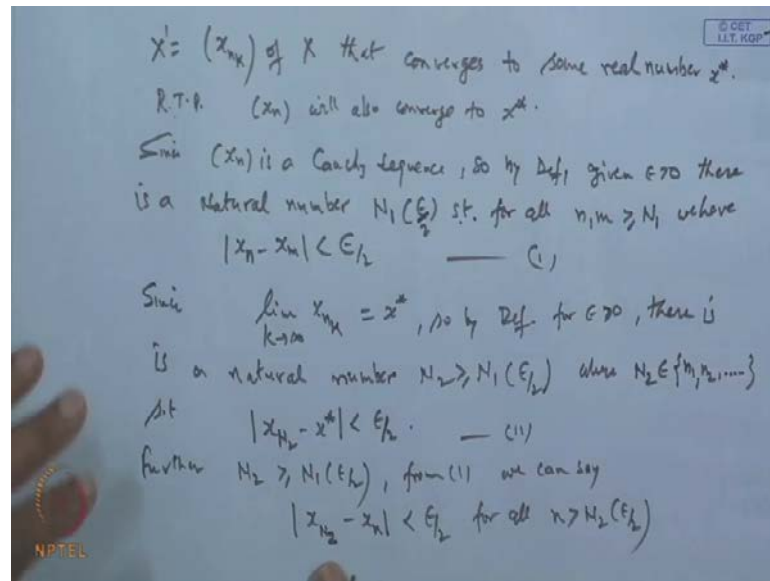 © CET
I.I.T. KGP
X' = (x_{n_k}) of X that converges to some real number x*.
R.T.P. (x_n) will also converge to x*.
Since (x_n) is a Cauchy sequence, so by Def, given ε>0 there
is a natural number N_1(ε/2) s.t. for all n,m ≥ N_1 we have
|x_n - x_m| < ε/2 —— (1)
Since lim_{k→∞} x_{n_k} = x*, so by Def. for ε>0, there is
is a natural number N_2 ≥ N_1(ε/2) where N_2 ∈ {n_1, n_2, ....}
s.t |x_{N_2} - x*| < ε/2. — (11)
Further N_2 ≥ N_1(ε/2), from (1) we can say
|x_{N_2} - x_n| < ε/2 for all n ≥ N_2(ε/2)
NPTEL